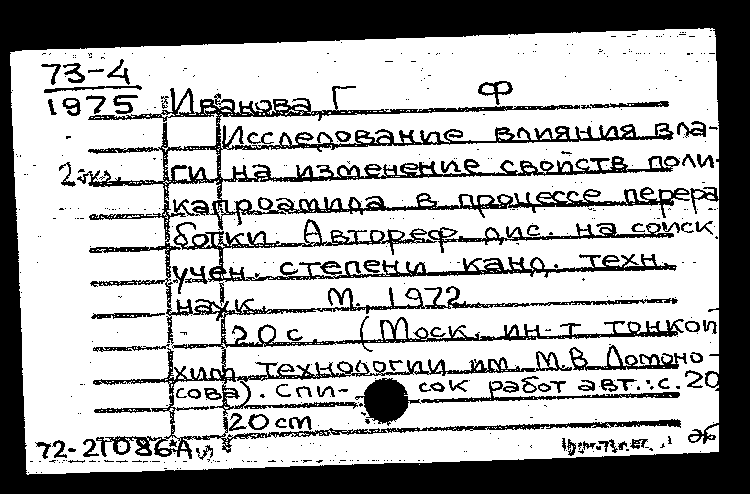 73-4
1975 Иванова, Г Ф
Исследование влияния вла-
2 экз. ги на изменение свойств поли-
капроамида в процессе перера
ботки. Автореф. дис. на соиск.
учен. степени канд. техн.
наук. М., 1972.
20 с. (Моск. ин-т тонкой
хим технологии им. М.В Ломоно-
сова). Спи- сок работ авт.: с. 20
20 cm
72-21086А